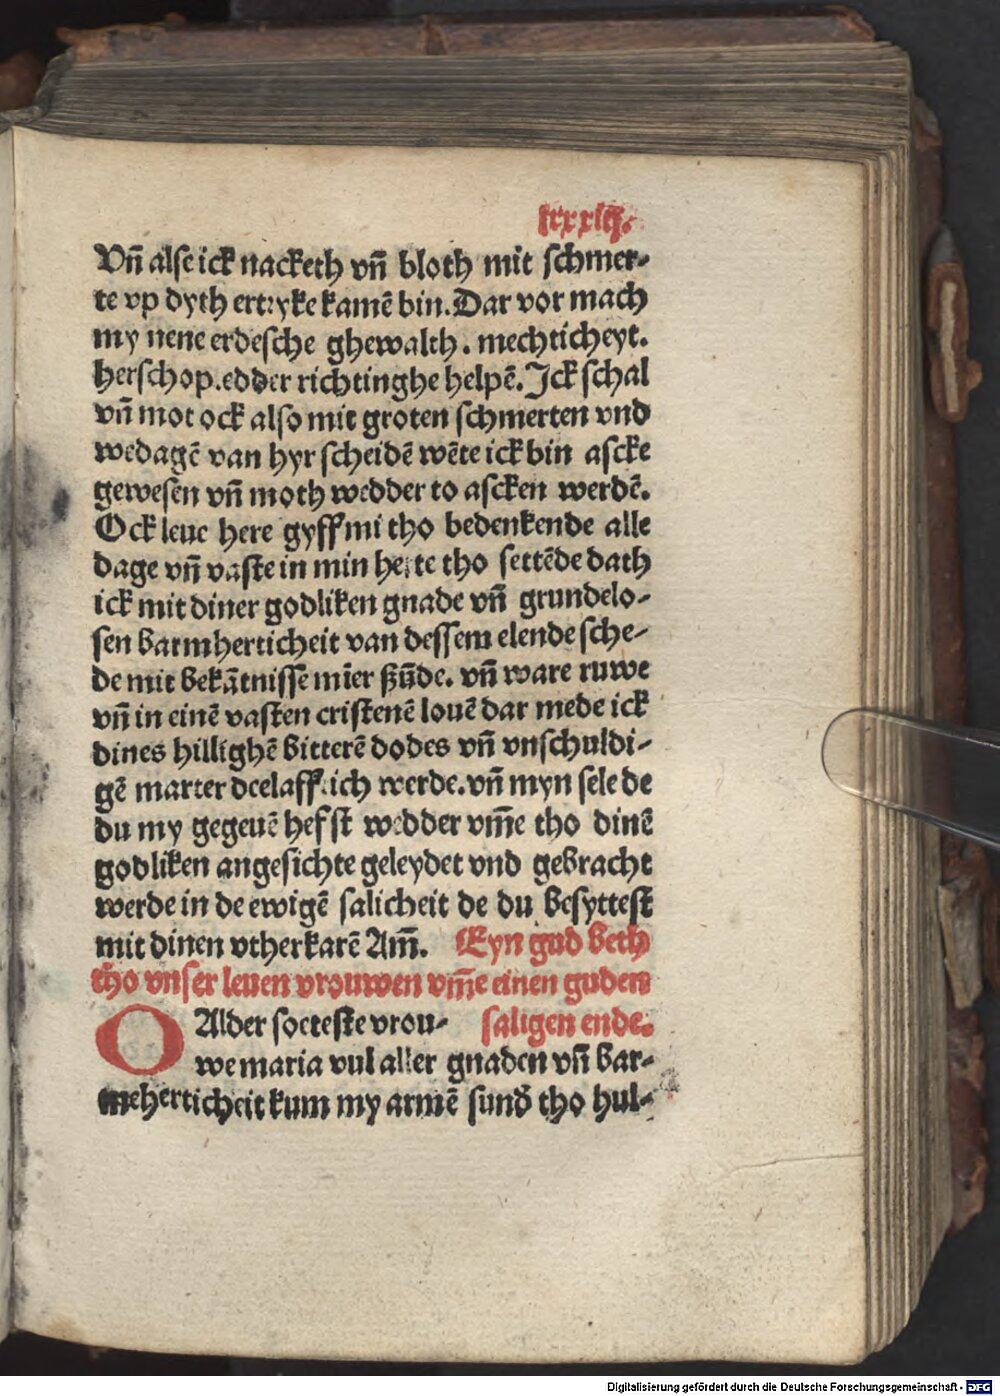 lxxxiij.
Vn̄ alse ick nacketh vn̄ bloth mit schmer-
te vp dyth ertryke kamē bin. Dar vor mach
my nene erdesche ghewalth. mechticheyt.
herschop. edder richtinghe helpē. Ick schal
vn̄ mot ock also mit groten schmerten vnd
wedagē van hyr scheidē wēte ick bin ascke
gewesen vn̄ moth wedder to ascken werdē.
Ock leue here gyff mi tho bedenkende alle
dage vn̄ vaste in min herte tho settēde dath
ick mit diner godliken gnade vn̄ grundelo-
sen barmherticheit van dessem elende sche-
de mit bekātnisse mīer sūnde. vn̄ ware ruwe
vn̄ in einē vasten cristenē louē dar mede ick
dines hillighē bitterē dodes vn̄ vnschuldi-
gē marter deelafftich werde. vn̄ myn sele de
du my gegeuē hefst wedder vm̄e tho dinē
godliken angesichte geleydet vnd gebracht
werde in de ewigē salicheit de du besyttest
mit dinen vtherkarē Am̄. Eyn gud beth
tho vnser leuen vrouwen vm̄e einen guden
O Alder soeteste vrou- saligen ende.
we maria vul aller gnaden vn̄ bar-
meherticheit kum my armē sund' tho hul-
Digitalisierung gefördert durch die Deutsche Forschungsgemeinschaft - DFG